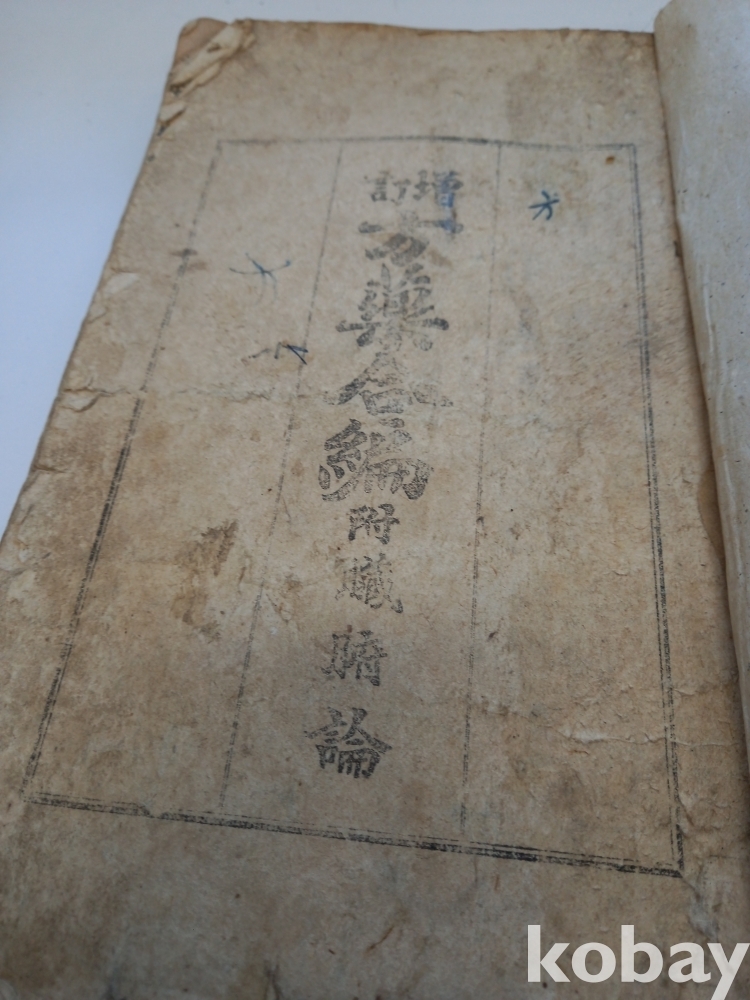 增訂
方藥合編
附臟腑論
kobay